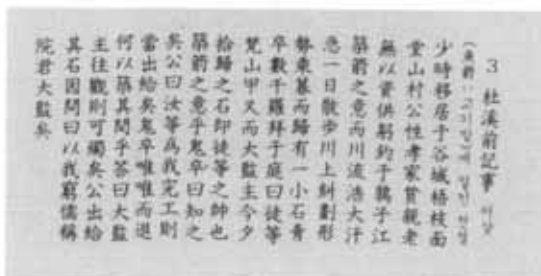 3 杜溪前記事
少時移居于谷城梧枝面
堂山村公性孝家貧親老
無以資供躬釣于鶉子江
築箭之意而川流浩大汗
一日散步川上糾劃形
勢乘暮而歸有一小石青
卒數千羅拜于庭曰徒等
梵山甲又而大監主今夕
拾歸之石卽徒等之帥也
築箭之意乎鬼卒曰知之
矣公曰汝等為我完工則
當出給矣鬼卒唯唯而退
何以築其間乎答曰大監
主往觀則可燭矣公出給
其石因問曰以我窮儒稱
院君大監矣